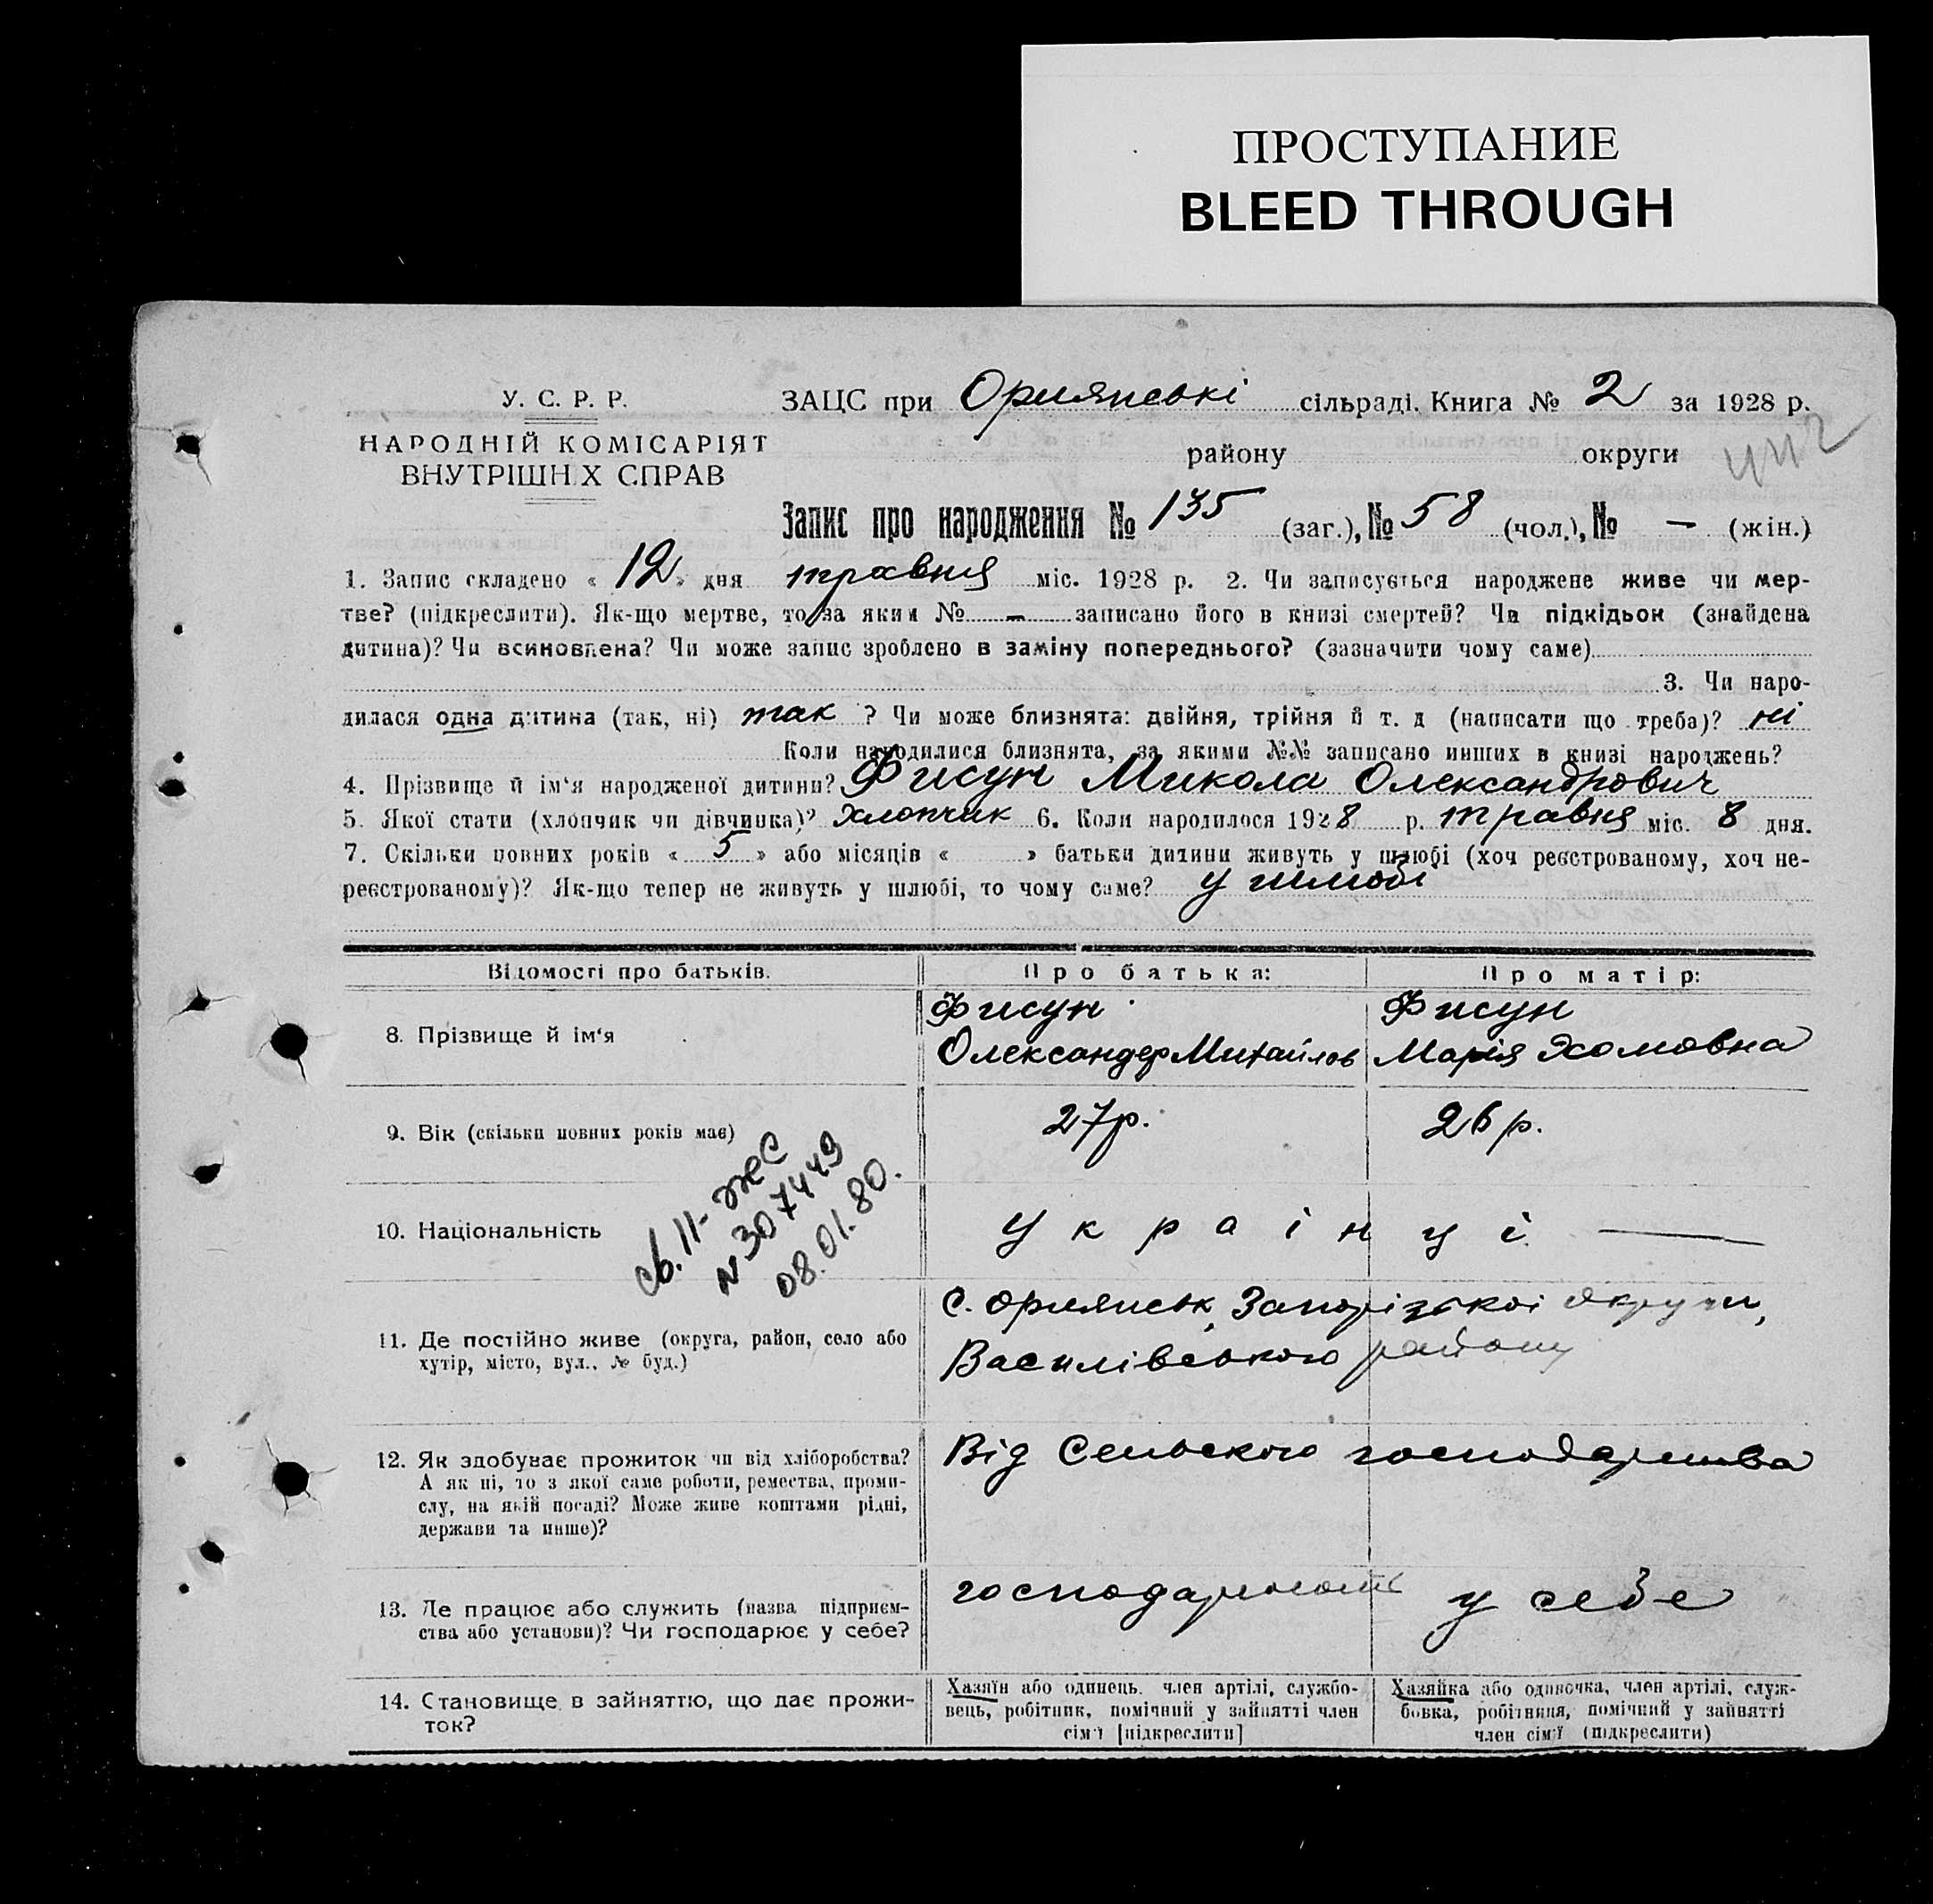 ПРОСТУПАНИЕ
BLEED THROUGH
У. С. Р. Р.
НАРОДНІЙ КОМІСАРІЯТ
ВНУТРІШН.Х СПРАВ
ЗАЦС при Орлянські сільраді. Книга № 2 за 1928 р.
району округи
Запис про народження № 135 (заг.), № 58 (чол.), № — (жін.)
1. Запис складено « 12 » дня травня міс. 1928 р. 2. Чи записується народжене живе чи мер-
тве? (підкреслити). Як-що мертве, то за яким № — записано його в книзі смертей? Чи підкідьок (знайдена
дитина)? Чи всиновлена? Чи може запис зроблено в заміну попереднього? (зазначити чому саме)
3. Чи наро-
дилася одна дитина (так, ні) так ? Чи може близнята: двійня, трійня й т. д (написати що треба)? ні
Коли народилися близнята, за якими №№ записано инших в книзі народжень?
4. Прізвище й ім‘я народженої дитини? Фисун Микола Олександрович
5. Якої стати (хлопчик чи дівчинка)? Хлопчик 6. Коли народилося 1928 р. травня міс. 8 дня.
7. Скільки повних років « 5 » або місяців « » батьки дитини живуть у шлюбі (хоч реєстрованому, хоч не-
реєстрованому)? Як-що тепер не живуть у шлюбі, то чому саме? у шлюбі
Відомості про батьків. Про батька: Про матір:
8. Прізвище й ім‘я
Фисун
Олександер Михайлов
Фисун
Марія Хомовна
9. Вік (скільки повних років має) 27р. 26 р.
св. II-ЖС
№ 307449
08.01.80.
10. Національність українці —
11. Де постійно живе (округа, район, село або
хутір, місто, вул.. № буд.)
с. Орлянськ, Запорізькоі округи,
Василівського району
12. Як здобуває прожиток чи від хліборобства?
А як ні, то з якої саме роботи, ремества, проми-
слу, на якій посаді? Може живе коштами рідні,
держави та инше)?
Від Сельского господарства
13. Де працює або служить (назва підприєм-
ства або установи)? Чи господарює у себе?
у себе
14. Становище в зайняттю, що дає прожи-
ток?
Хазяїн або одинець. член артілі, службо-
вець, робітник, помічний у зайнятті член
сім'ї [підкреслити]
Хазяйка або одиночка, член артілі, служ-
бовка, робітниця, помічний у зайнятті
член сім'ї (підкреслити)